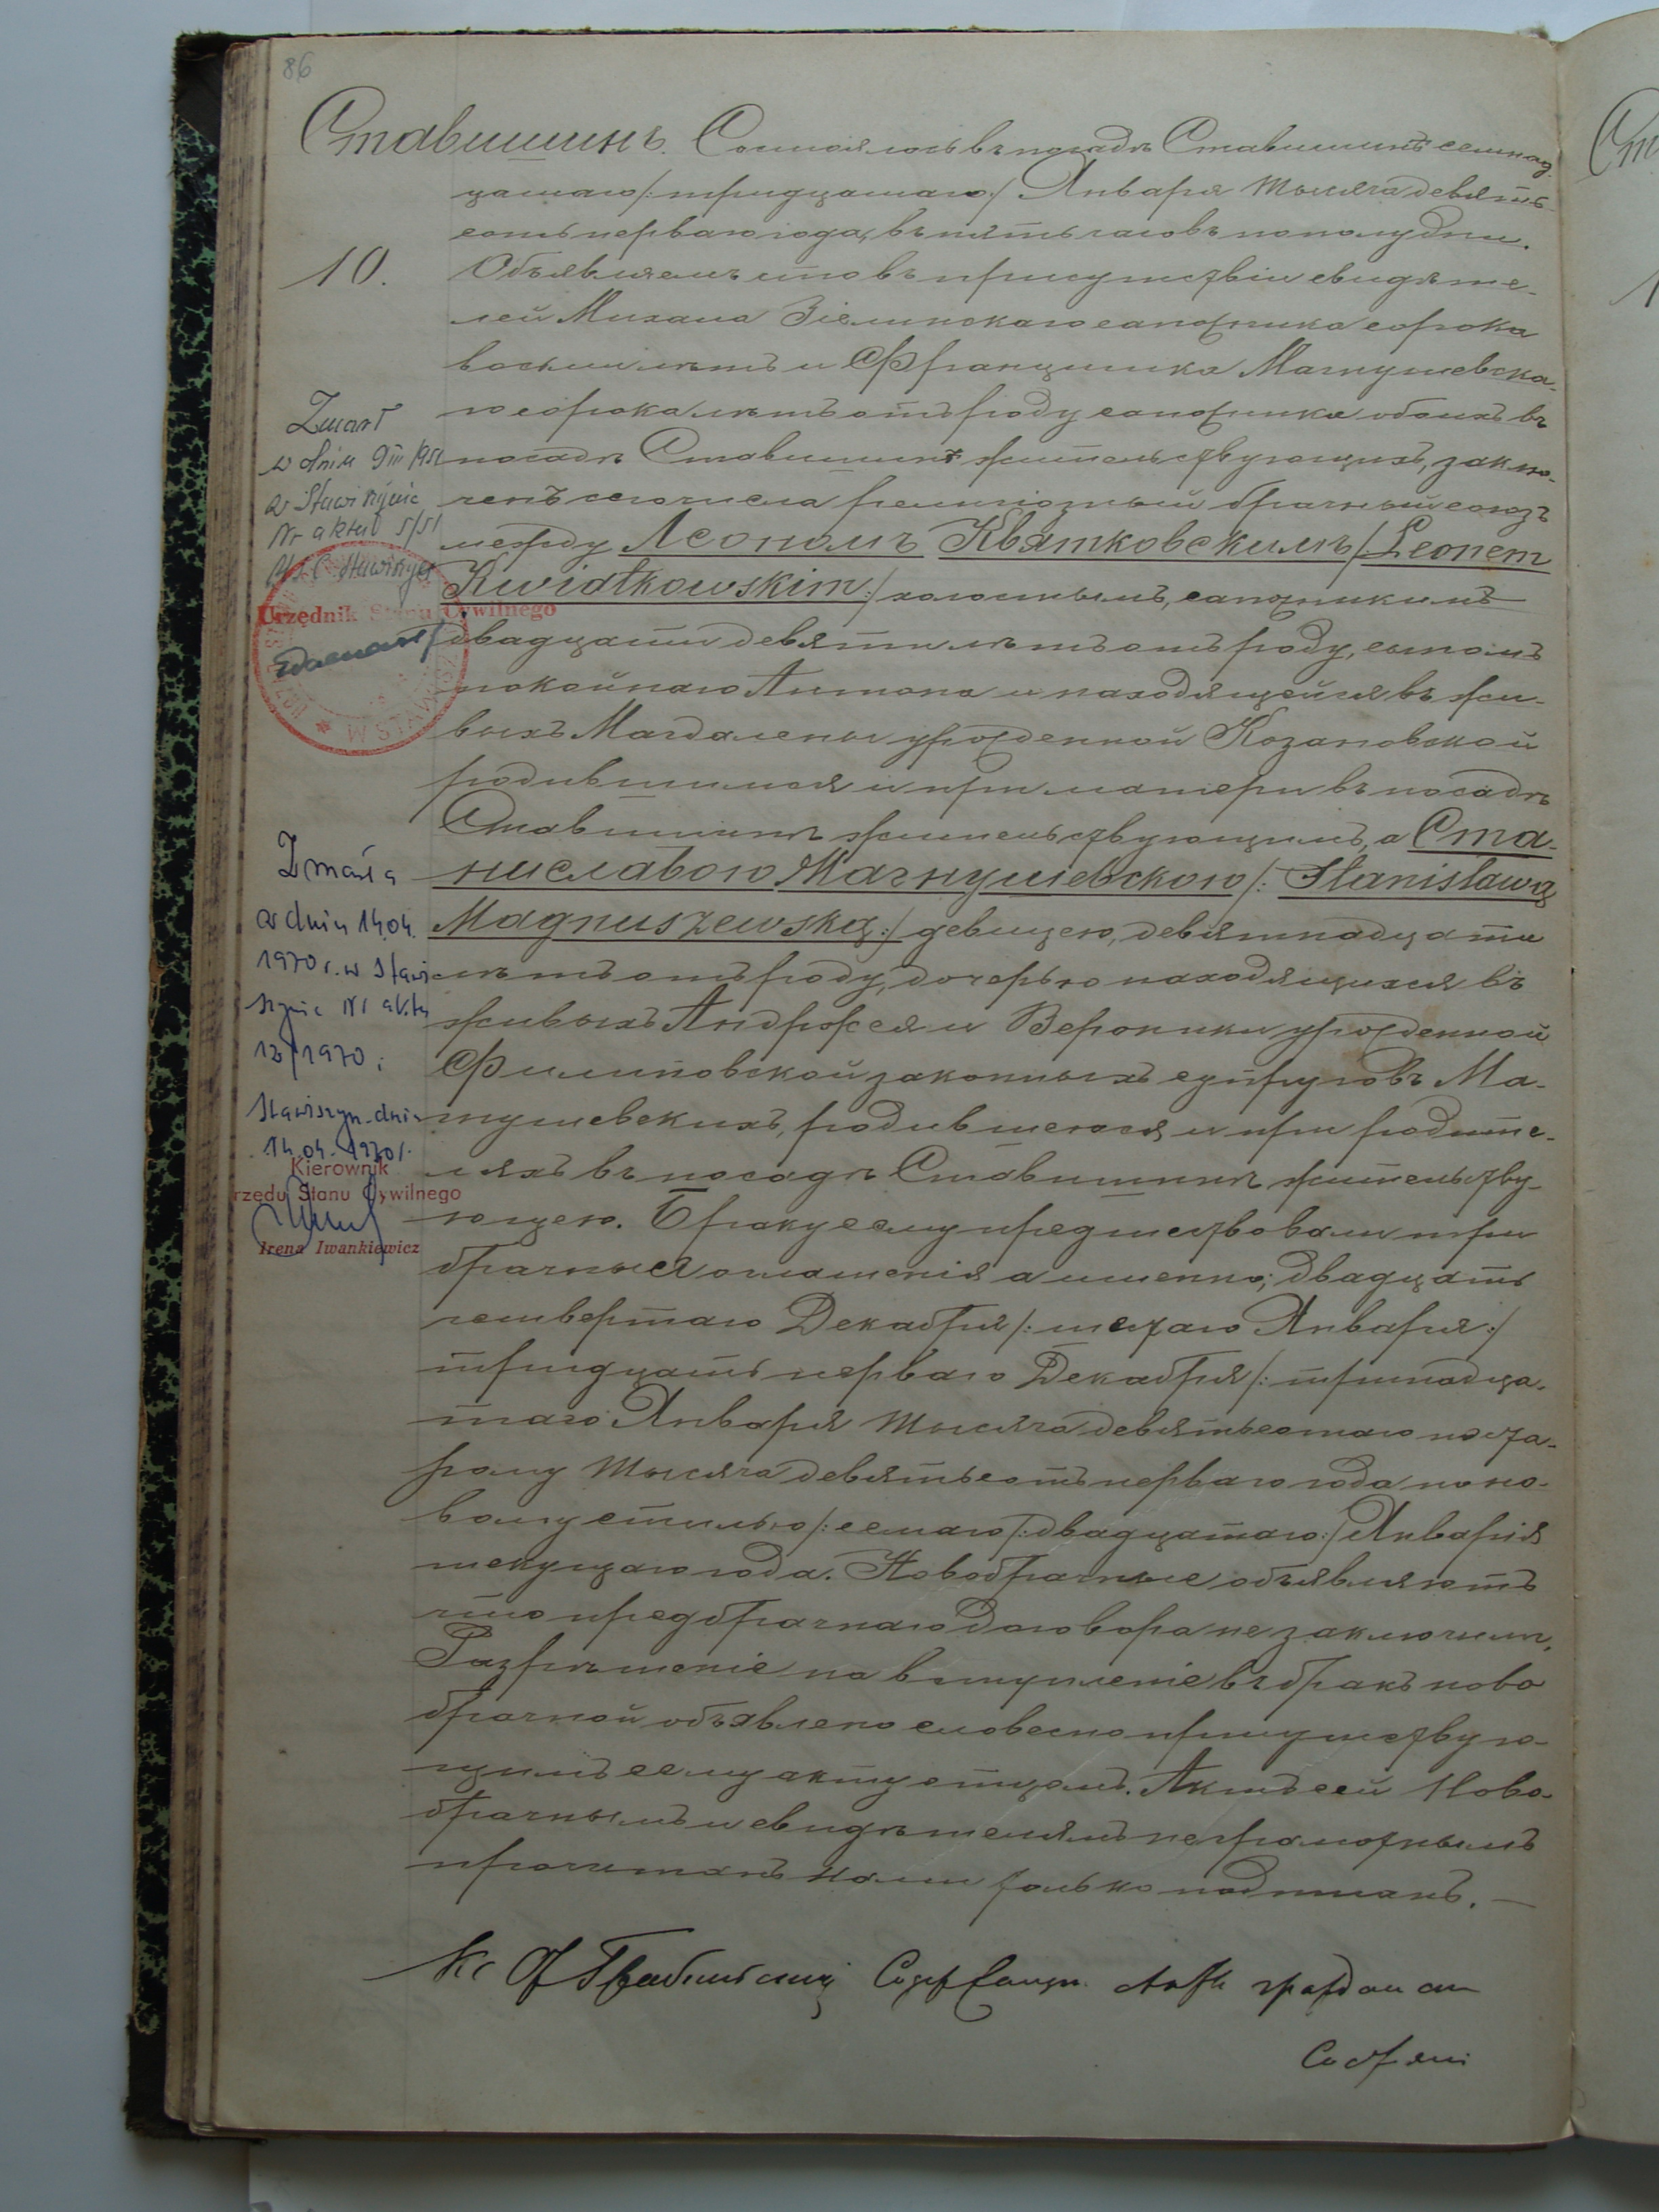 86
Ставишинъ. Состоялось въ посадѣ Ставишинѣ семнад-
цатаго /:тридцатаго:/ Января тысяча девять-
сотъ перваго года, въ пять часовъ пополудни.
10.
Объявляемъ что въ присутствіи свидѣте-
лей Михала Зіелинскаго сапожника сорока
восьми лѣтъ и Францишка Магнушевска-
го сорока лѣтъ отъ роду сапожника обоихъ въ
посадѣ Ставишинѣ жительствующихъ, заклю-
ченъ сего числа религіозный брачный союзъ
между Леономъ Квятковскимъ /:Leonem
Kwiatkowskim:/ холостымъ, сапожникомъ
двадцати девяти лѣтъ отъ роду, сыномъ
покойнаго Антона и находящейся въ жи-
выхъ Магдалены урожденной Козановской
родившимся и при матери въ посадѣ
Ставишинѣ жительствующимъ, а Ста-
ниславою Магнушевскою /:Stanisławą
Magnuszewską:/ девицею, девятнадцати
лѣтъ отъ роду, дочерью находящихся въ
живыхъ Андржея и Вероники урожденной
Филиповской законныхъ супруговъ Ма-
гнушевскихъ, родившеюся и при родите-
ляхъ въ посадѣ Ставишинѣ жительству-
ющею. Браку сему предшествовали три
брачныя оглашенія а именно; двадцать
четвертаго Декабря /:шестаго Января:/
тридцать перваго Декабря /:тринадца-
таго Января тысяча девятьсотаго по ста-
рому тысяча девятьсотъ перваго года по но-
вому стилью /:семаго /:двадцатаго:/ Января
текущаго года. Новобрачные объявляютъ
что предбрачнаго договора не заключили.
Разрѣшеніе на вступленіе въ бракъ ново
брачной объявлено словесно присутствую-
щимъ сему акту отцемъ. Актъ сей Ново-
брачнымъ и свидѣтелямъ неграмотнымъ
прочитанъ Нами только подписанъ.
Zmarł
w dniu 9 III 1951
w Stawiszynie
Nr aktu 5/51
Urzędnik Stanu Cywilnego
Zmarła
w dniu 14.04.
1970 r. w Stawi
szynie Nr aktu
12/1970;
Stawiszyn. dnia
14.04.1970 r.
Kierownik
rzędu Stanu Cywilnego
Irena Iwankiewicz